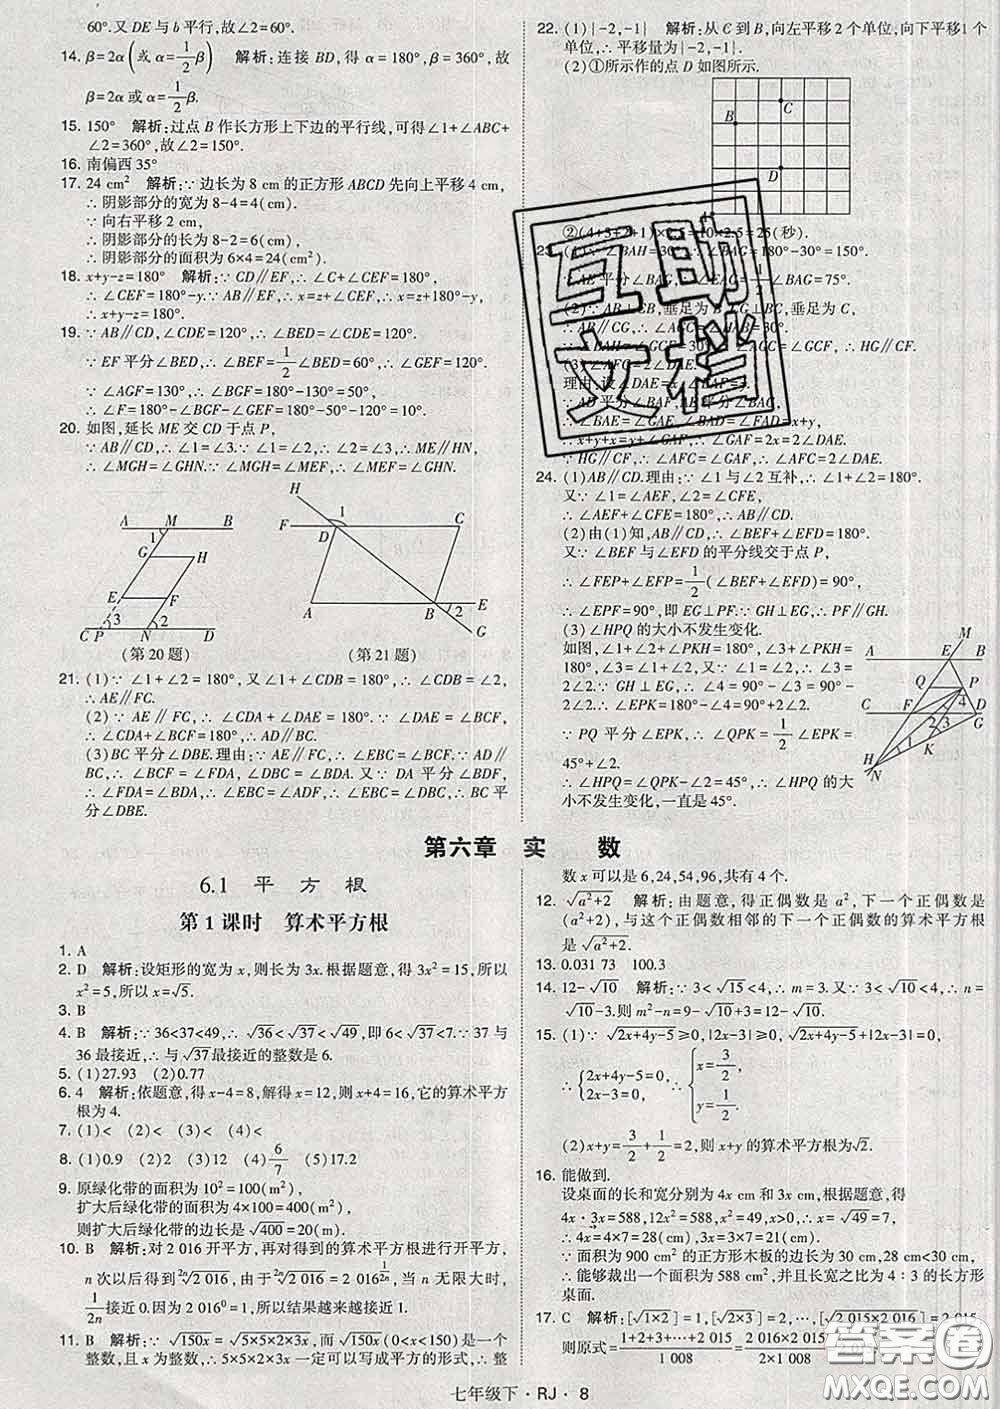 60°.又 DE 与 b 平行,故∠2=60°.
14. β=2α(或 α=1/2β)　解析:连接 BD,得 α=180°,β=360°,故
β=2α 或 α=1/2β.
15. 150°　解析:过点 B 作长方形上下边的平行线,可得∠1+∠ABC+
∠2=360°,故∠2=150°.
16. 南偏西 35°
17. 24 cm²　解析:∵ 边长为 8 cm 的正方形 ABCD 先向上平移 4 cm,
∴ 阴影部分的宽为 8-4=4(cm).
∵ 向右平移 2 cm,
∴ 阴影部分的长为 8-2=6(cm).
∴ 阴影部分的面积为 6×4=24(cm²).
18. x+y-z=180°　解析:∵ CD∥EF,∴ ∠C+∠CEF=180°,
∴ ∠CEF=180°-y.∵ AB∥CD,∴ x=z+∠CEF,∴ x=z+180°-y,
∴ x+y-z=180°.
19. ∵ AB∥CD,∠CDE=120°,∴ ∠BED=∠CDE=120°.
∵ EF 平分∠BED,∴ ∠BEF=1/2∠BED=60°,∠GEF=120°.
∵ ∠AGF=130°,∴ ∠BGF=180°-130°=50°,
∴ ∠F=180°-∠BGF-∠GEF=180°-50°-120°=10°.
20. 如图,延长 ME 交 CD 于点 P,
∵ AB∥CD,∴ ∠1=∠3.∵ ∠1=∠2,∴ ∠2=∠3,∴ ME∥HN,
∴ ∠MGH=∠GHN.∵ ∠MGH=∠MEF,∴ ∠GHN=∠MEF.
A M B
1
G H
E F
3 2
C P N D
(第 20 题)
H
F 1 C
D
A B 2 E
G
(第 21 题)
21. (1)∵ ∠1+∠2=180°,又∵ ∠1+∠CDB=180°,∴ ∠CDB=∠2,
∴ AE∥FC.
(2)∵ AE∥FC,∴ ∠CDA+∠DAE=180°.∵ ∠DAE=∠BCF,
∴ ∠CDA+∠BCF=180°,∴ AD∥BC.
(3)BC 平分∠DBE.理由:∵ AE∥FC,∴ ∠EBC=∠BCF.∵ AD∥
BC,∴ ∠BCF=∠FDA,∠DBC=∠BDA.又∵ DA 平分∠BDF,
∴ ∠FDA=∠BDA,∴ ∠EBC=∠DBC,∴ BC 平分∠DBE.
22. (1){-2,-1}　解析:从 C 到 B,向左平移 2 个单位,向下平移 1 个
单位,∴ 平移量为{-2,-1}.
(2)①所示作的点 D 如图所示.
C
B
D
②(4+3+2+1)×2.5=10×2.5=25(秒).
∠BAG=180°-30°=150°.
∠BAG=75°.
垂足为 C,
∴ HG∥CF.
24. (1)AB∥CD.理由:∵ ∠1 与∠2 互补,∴ ∠1+∠2=180°.
又∵ ∠1=∠AEF,∠2=∠CFE,
∴ ∠AEF+∠CFE=180°,∴ AB∥CD.
(2)由(1)知,AB∥CD,∴ ∠BEF+∠EFD=180°.
又∵ ∠BEF 与∠EFD 的平分线交于点 P,
∴ ∠FEP+∠EFP=1/2(∠BEF+∠EFD)=90°,
∴ ∠EPF=90°,即 EG⊥PF.∵ GH⊥EG,∴ PF∥GH.
(3)∠HPQ 的大小不发生变化.
如图,∠1+∠2+∠PKH=180°,∠3+∠4+∠PKH=180°,
∵ GH⊥EG,
∴ ∠EPK=180°-∠4=90°+2∠2.
∵ PQ 平分∠EPK,∴ ∠QPK=1/2∠EPK=
45°+∠2.
∴ ∠HPQ=∠QPK-∠2=45°,∴ ∠HPQ 的大
小不发生变化,一直是 45°.
M
A E B
Q P
4
C F D
2 3 G
1 K
H
N
第六章　实　　数
6.1　平　方　根
第 1 课时　算术平方根
1. A
2. D　解析:设矩形的宽为 x,则长为 3x.根据题意,得 3x²=15,所以
x²=5,所以 x=√5.
3. B
4. B　解析:∵ 36<37<49,∴ √36<√37<√49,即 6<√37<7.∵ 37 与
36 最接近,∴ 与√37最接近的整数是 6.
5. (1)27.93　(2)0.77
6. 4　解析:依题意,得 x-4=8,解得 x=12,则 x+4=16,它的算术平方
根为 4.
7. (1)<　(2)<　(3)<　(4)<
8. (1)0.9　(2)2　(3)12　(4)6/7　(5)17.2
9. 原绿化带的面积为 10²=100(m²),
扩大后绿化带的面积为 4×100=400(m²),
则扩大后绿化带的边长是 √400=20(m).
10. B　解析:对 2 016 开平方,再对得到的算术平方根进行开平方,
n 次以后得到
当 n 无限大时,
1/2n 接近 0,∵ 2 016⁰=1,所以结果越来越接近 1.
11. B　解析:∵ √150x=√5×5×2×3x,而√150x(0<x<150)是一个
整数,且 x 为整数,∴ 5×5×2×3x 一定可以写成平方的形式,∴ 整
数 x 可以是 6,24,54,96,共有 4 个.
12. √a²+2　解析:由题意,得正偶数是 a²,下一个正偶数是
(a²+2),与这个正偶数相邻的下一个正偶数的算术平方根
是√a²+2.
13. 0.031 73　100.3
14. 12-√10　解析:∵ 3<√15<4,∴ m=3.又∵ 3<√10<4,∴ n=
√10-3.则 m²-n=9-√10+3=12-√10.
15. (1)∵ √2x+4y-5≥0,|2x-3|≥0,√2x+4y-5+|2x-3|=0,
∴ {2x+4y-5=0, 2x-3=0. ∴ {x=3/2, y=1/2.
(2)x+y=3/2+1/2=2,则 x+y 的算术平方根为√2.
16. 能做到.
设桌面的长和宽分别为 4x cm 和 3x cm,根据题意,得
4x·3x=588,12x²=588,x²=49,x>0,∴ x=√49=7,
∴ 4x=4×7=28(cm),3x=3×7=21(cm).
∵ 面积为 900 cm² 的正方形木板的边长为 30 cm,28 cm<30 cm,
∴ 能够裁出一个面积为 588 cm²,并且长宽之比为 4∶3 的长方形
桌面.
17. C　解析:[√1×2]=1,[√2×3]=2,
则原式=(1+2+3+…+2 016)/1 008=(2 016×2 017)/(2×1 008)
互助
文档
答案圈
MXQE.COM
七年级下·RJ·8